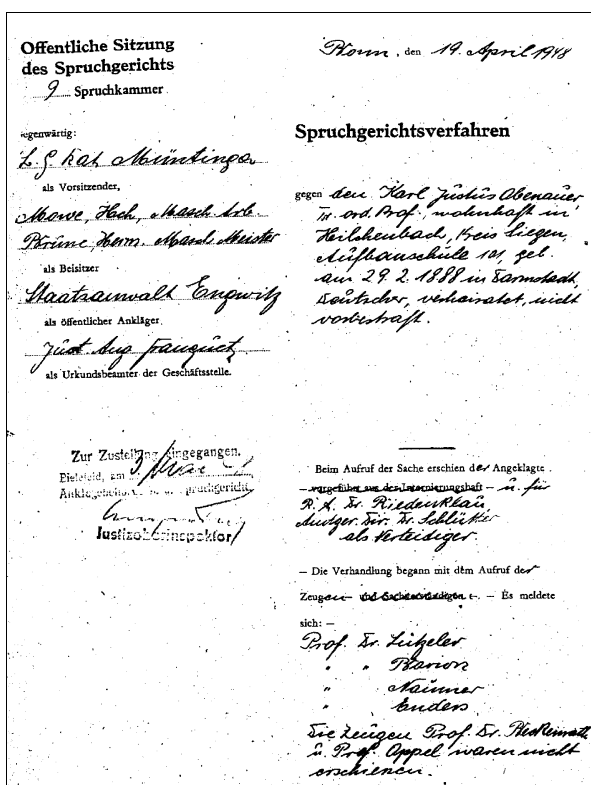 Öffentliche Sitzung
des Spruchgerichts
9 Spruchkammer
Gegenwärtig:
L. G. Rat Müntinga
als Vorsitzender,
Mowe, Hch, Masch. Arb.
Brüne, Herm. Masch. Meister
als Beisitzer
Staatsanwalt Engwitz
als öffentlicher Ankläger
Just. Ang. Franquet
als Urkundsbeamter der Geschäftsstelle.
Zur Zustellung eingegangen.
Bielefeld, am 3. Mai
Anklagebehörde b. d. Spruchgericht
Justizoberinspektor
Bonn, den 19. April 1948
Spruchgerichtsverfahren
gegen den Karl Justus Obenauer
Dr. ord. Prof., wohnhaft in
Hilchenbach, Kreis Siegen,
Aufbauschule 101, geb.
am 29.2.1888 in Darmstadt,
Deutscher, verheiratet, nicht
vorbestraft.
Beim Aufruf der Sache erschien der Angeklagte
— vorgeführt aus der Internierungshaft — u. für
R. A. Dr. Riedenklau
Amtger. Dir. Dr. Schlüter
als Verteidiger.
— Die Verhandlung begann mit dem Aufruf der
Zeugen — und Sachverständigen —. — Es meldete
sich: —
Prof. Dr. Lützeler
" " Barion
" Naumer
" Enders
Die Zeugen Prof. Dr.
u. Prof. Appel waren nicht
erschienen.